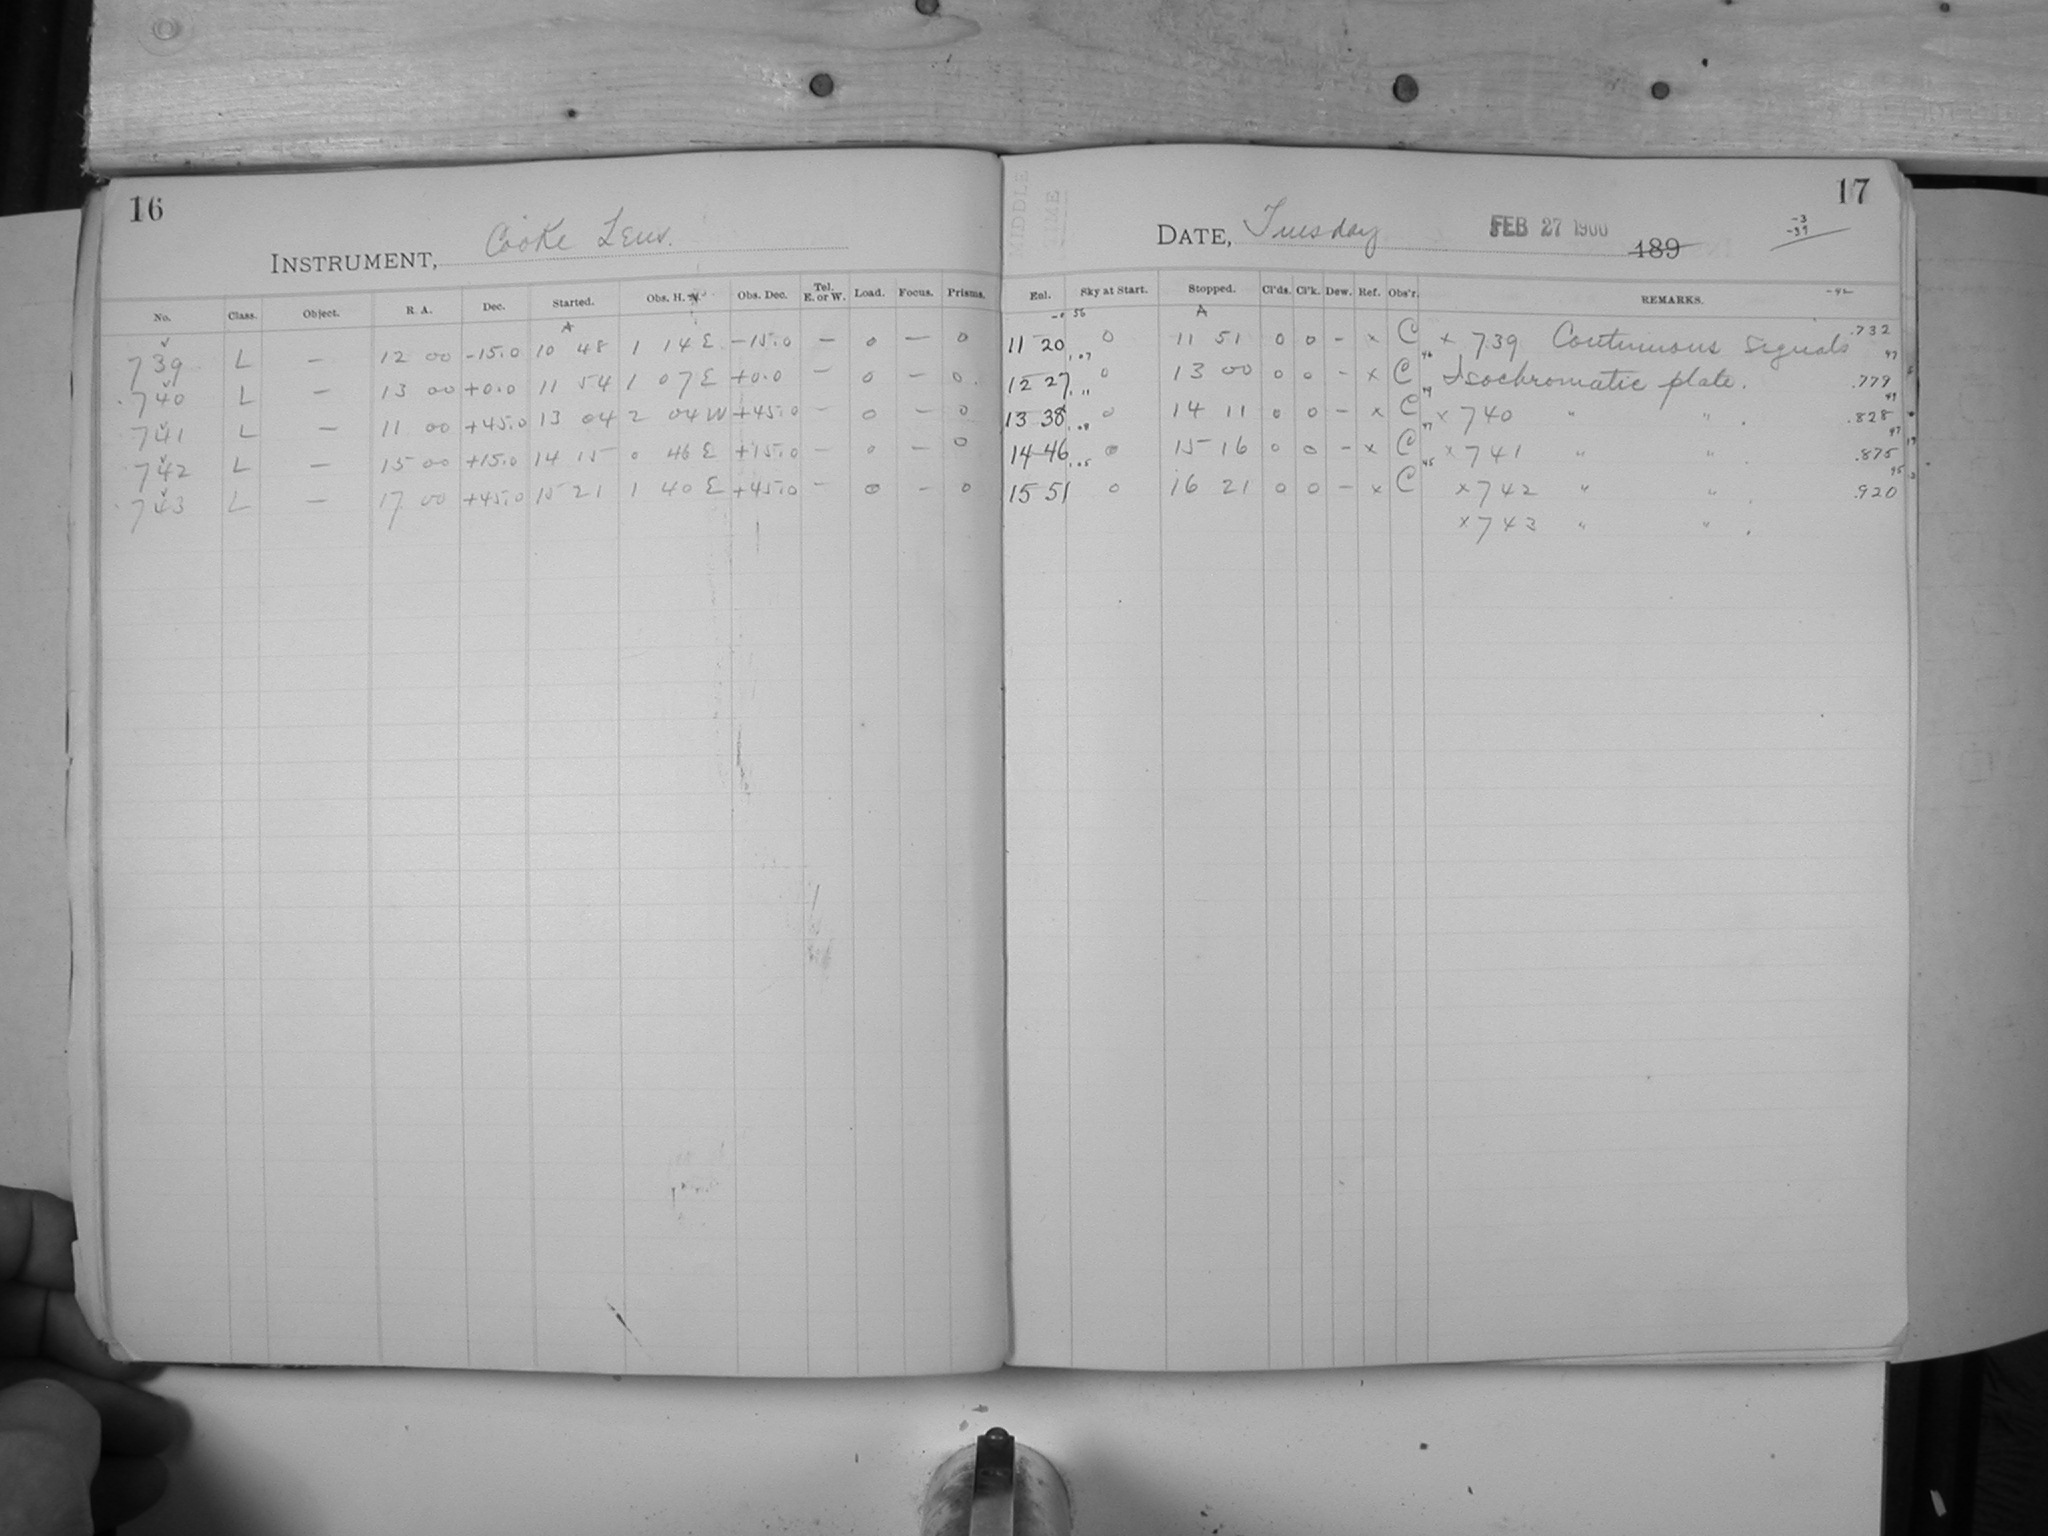 16
INSTRUMENT, Cooke Lens.
No. Class. Object. R. A. Dec. Started. Obs. H. Obs. Dec. Tel. E. or W. Load. Focus. Prisms.
A
739 L — 12 00 -15.0 10 48 1 14 E -15.0 — 0 — 0
740 L — 13 00 +0.0 11 54 1 07 E +0.0 — 0 — 0.
741 L — 11 00 +45.0 13 04 2 04 W +45.0 — 0 — 0
742 L — 15 00 +15.0 14 15 0 46 E +15.0 — 0 — 0
743 L — 17 00 +45.0 15 21 1 40 E +45.0 — 0 — 0
17
MIDDLE
TIME
DATE, Tuesday FEB 27 1900 189
-3
-39
Enl. Sky at Start. Stopped. Cl'ds. Cl'k. Dew. Ref. Obs'r. REMARKS.
56 A
11 20 0 11 51 0 0 - x C x 739 Continuous Signals .732
12 27 0 13 00 0 0 - x C Isochromatic plate. .779
13 38 0 14 11 0 0 - x C x 740 " " . .828
14 46 0 15 16 0 0 - x C x 741 " " . .875
15 51 0 16 21 0 0 - x C x 742 " " . .920
x 743 " " .